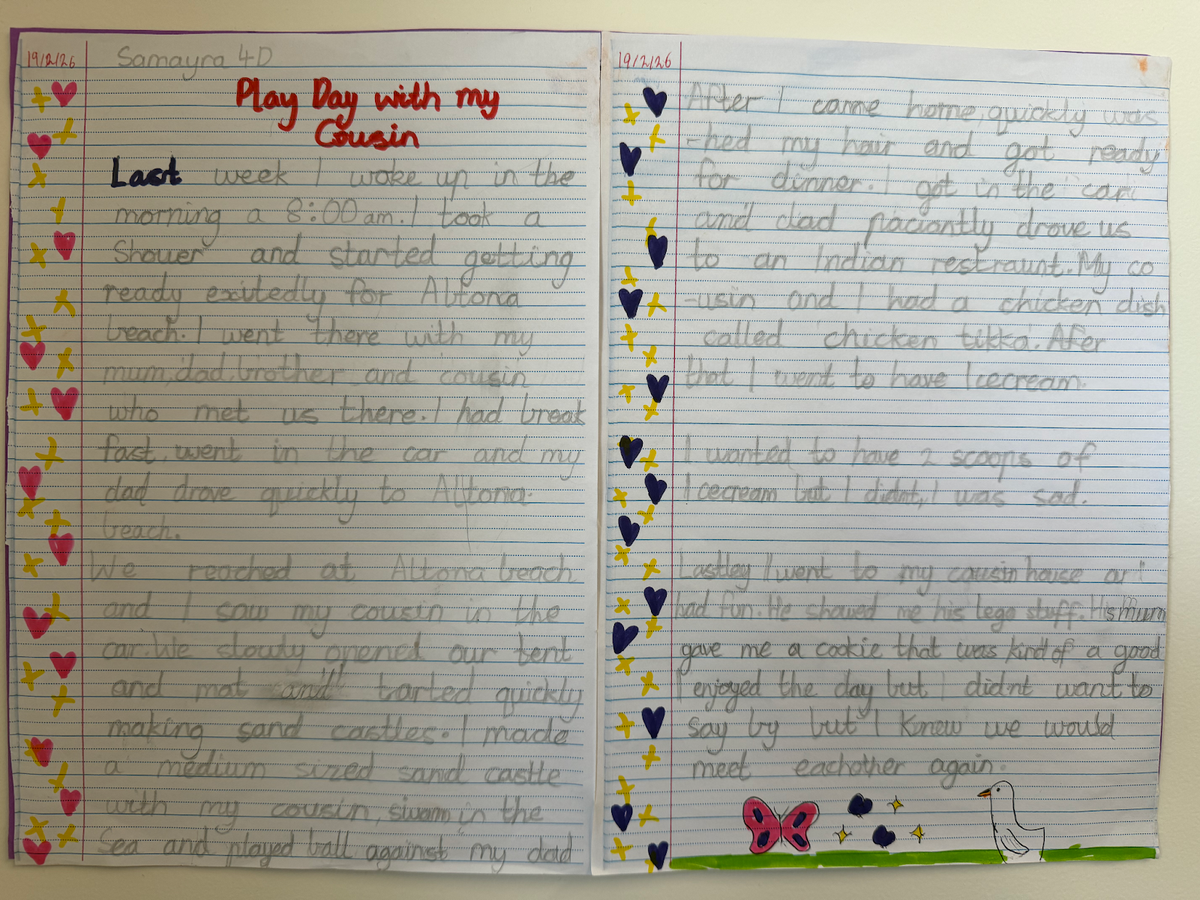 19/2/26
Samayra 4D
Play Day with my
Cousin
Last week I woke up in the
morning a 8:00 am. I took a
Shower and started getting
ready exitedly for Altona
beach. I went there with my
mum, dad, brother and cousin
who met us there. I had break
fast, went in the car and my
dad drove quickly to Altona
beach.
We reached at Altona beach
and I saw my cousin in the
car. We slowly opened our tent
and mat and tarted quickly
making sand castles. I made
a medium sized sand castle
with my cousin, swam in the
Sea and played ball against my dad
19/2/26
After I came home, quickly was
-hed my hair and got ready
for dinner. I got in the car
and dad paciantly drove us
to an Indian restraunt. My co
-usin and I had a chicken dish
called chicken tikka. Afer
that I went to have Icecream.
I wanted to have 2 scoops of
Icecream but I didnt, I was sad.
Lastley I went to my cousin house
had fun. He showed me his lego stuff. His Mum
gave me a cookie that was kind of a good
I enjoyed the day but I didnt want to
say by but I knew we would
meet eachother again.